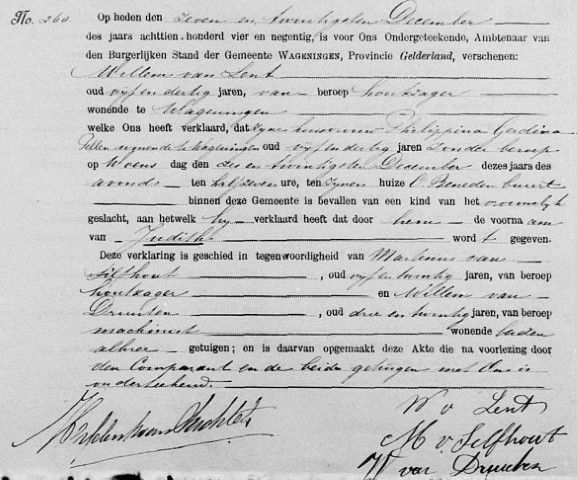 No. 260 Op heden den zeven en twintigsten December
des jaars achttien honderd vier en negentig, is voor Ons Ondergeteekende, Ambtenaar van
den Burgerlijken Stand der Gemeente WAGENINGEN, Provincie Gelderland, verschenen:
Willem van Lent
oud vijf en dertig jaren, van beroep houtzager
wonende te Wageningen
welke Ons heeft verklaard, dat zijne huisvrouw Philippina Gerdina
wonende te Wageningen oud vijf en dertig jaren zonder beroep
op Woens dag den zes en twintigsten December dezes jaars des
avonds ten half zeven ure, ten zijnen huize Beneden buurt
binnen deze Gemeente is bevallen van een kind van het vrouwelijk
geslacht, aan hetwelk hij verklaard heeft dat door hem de voorna am
van Judith word t gegeven.
Deze verklaring is geschied in tegenwoordigheid van Martinus van
Silfhout, oud vijf en twintig jaren, van beroep
houtzager en Willem van
Druuten, oud drie en twintig jaren, van beroep
machinist wonende beiden
alhier getuigen; en is daarvan opgemaakt deze Akte die na voorlezing door
den Comparant en de beide getuigen met Ons is
onderteekend.
W v Lent
M v Silfhout
W van Druuten